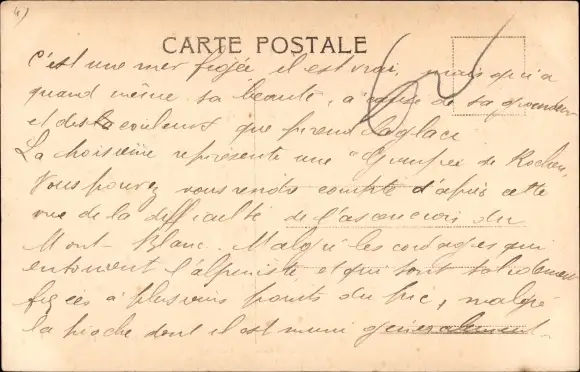 4)
CARTE POSTALE
C'est une mer figée il est vrai, mais qui a
quand même sa beauté, à cause de sa grandeur
et des couleurs que prend la glace
La troisième représente une "Grimpée de Rochers,
Vous pouvez vous rendre compte d'après cette
vue de la difficulté de l'ascension du
Mont-Blanc. Malgré les cordages qui
entourent l'alpiniste et qui sont solidement
fixés à plusieurs points du pic, malgré
la pioche dont il est muni généralement.